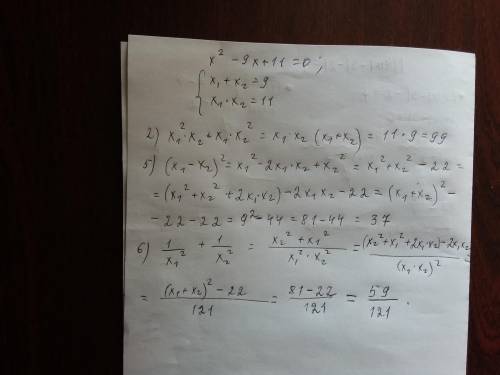 x² - 9x + 11 = 0;
{ x₁ + x₂ = 9
{ x₁ · x₂ = 11
2) x₁² · x₂ + x₁ · x₂² = x₁ · x₂ (x₁ + x₂) = 11 · 9 = 99
5) (x₁ - x₂)² = x₁² - 2x₁ · x₂ + x₂² = x₁² + x₂² - 22 =
= (x₁² + x₂² + 2x₁x₂) - 2x₁x₂ - 22 = (x₁ + x₂)² -
- 22 - 22 = 9² - 44 = 81 - 44 = 37
6) 1/x₁² + 1/x₂² = (x₂² + x₁²)/(x₁² · x₂²) = ((x₂² + x₁² + 2x₁x₂) - 2x₁x₂)/(x₁ · x₂)²
= ((x₁ + x₂)² - 22)/121 = (81 - 22)/121 = 59/121.